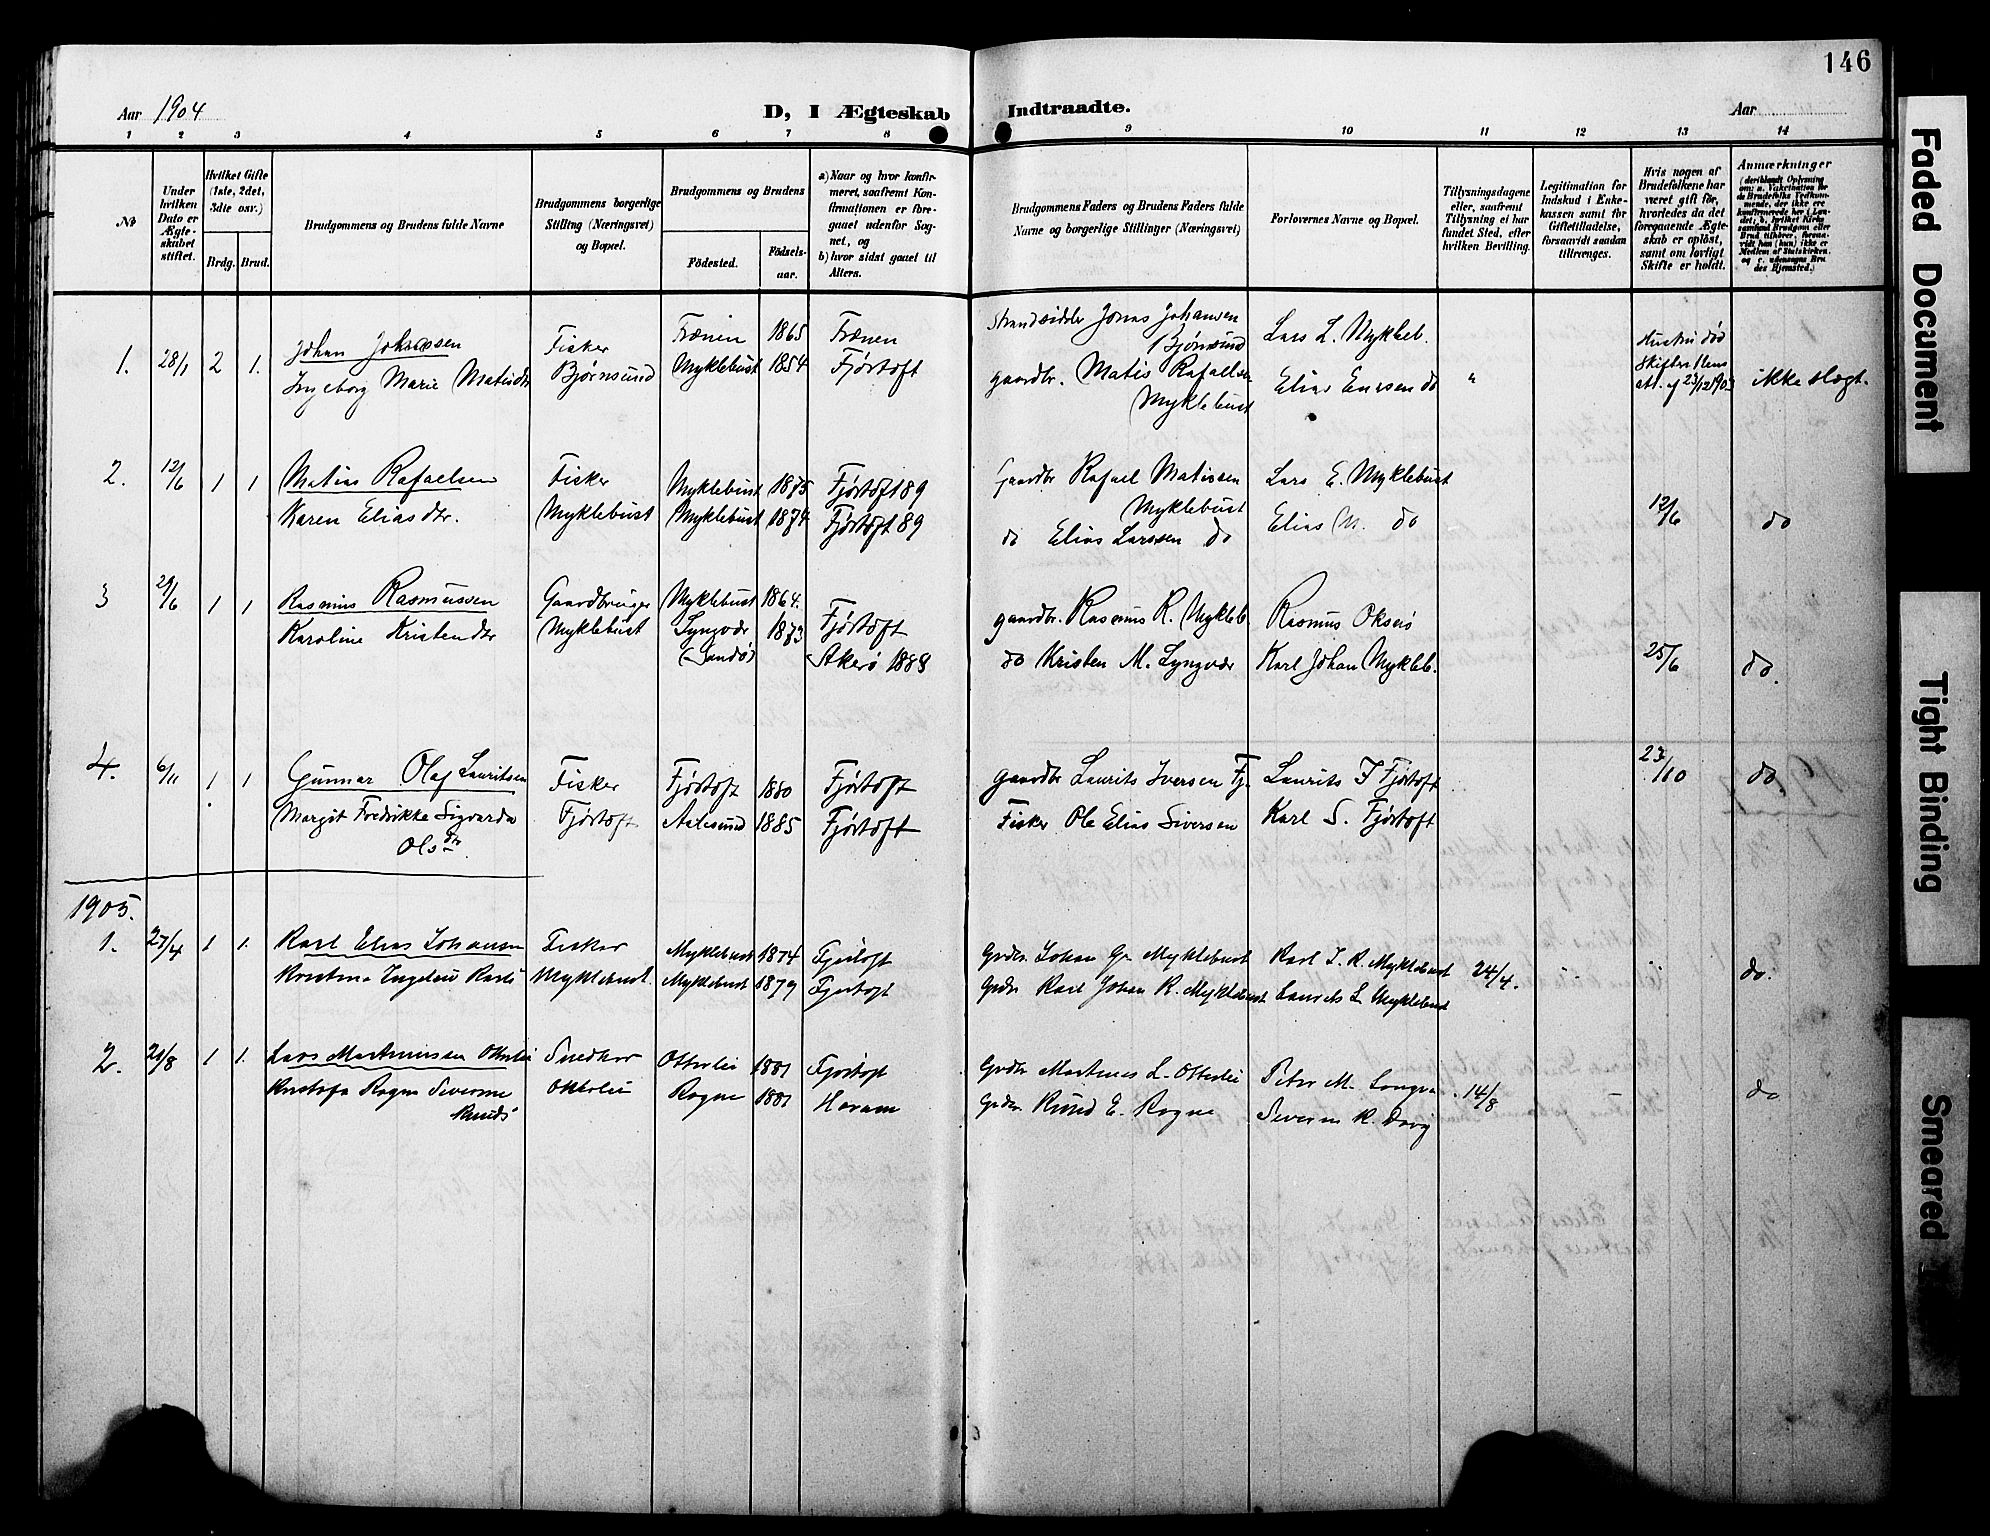 146
Aar 1904
D, I Ægteskab Indtraadte.
Aar
1 2 3 4 5 6 7 8 9 10 11 12 13 14
No
Under hvilken Dato er Ægteskabet stiftet.
Hvilket Gifte (1ste, 2det, 3die osv.)
Brdg. Brud.
Brudgommens og Brudens fulde Navne
Brudgommens borgerlige Stilling (Næringsvei) og Bopæl.
Brudgommens og Brudens
Fødested.
Fødselsaar.
a) Naar og hvor konfirmeret, saafremt Konfirmationen er foregaaet udenfor Sognet, og
b) hvor sidst gaaet til Alters.
Brudgommens Faders og Brudens Faders fulde Navne og borgerlige Stillinger (Næringsvei)
Forlovernes Navne og Bopæl.
Tillysningsdagene eller, saafremt Tillysning ei har fundet Sted, efter hvilken Bevilling.
Legitimation for Indskud i Enkekassen samt for Giftetilladelse, forsaavidt saadan tiltrænges.
Hvis nogen af Brudefolkene har været gift før, hvorledes da det foregaaende Ægteskab er opløst, samt om lovligt Skifte er holdt.
Anmærkninger
(deriblandt Oplysning om: a. Vakcination for de Brudefolks Vedkommende, der ikke ere konfirmerede her i Landet; b. hvilket Kirkesamfund Brudgom eller Brud tilhører, forsaavidt han (hun) ikke er Medlem af Statskirken, og c. udensogns Brudes Hjemsted.)
1. 28/1 2 1. Johan Johnsen Fisker Frænen 1865 Frænen Strandsidder Jonas Johansen Bjørnsund Lars L. Mykleb. Hustru død
Ingeborg Marie Matisdtr Bjørnsund Myklebust 1854 Fjørtoft gaardbr. Matis Rafaelsen Myklebust Elias do " ikke slægt.
2. 12/6 1 1 Matias Rafaelsen Fisker Myklebust 1875 Fjørtoft 89 Gaardbr Rafael Matissen Myklebust Lars E. Myklebust
Karen Eliasdtr. Myklebust Myklebust 1874 Fjørtoft 89 do Elias Larssen do Elias M. do 12/6 do
3 29/6 1 1 Rasmus Rasmussen Gaardbruger Myklebust 1864. Fjørtoft gaardbr. Rasmus R. Mykleb. Rasmus
Karoline Kristendtr Myklebust Lyngvær (Sandø) 1873 Akerø 1888 do Kristen M. Lyngvær Karl Johan Mykleb. 25/6 do.
4. 6/11 1 1 Gunnar Olaf Lauritsen Fisker Fjørtoft 1880 Fjørtoft gaardbr Laurits Iversen Fj. Laurits I Fjørtoft 23/10 do
Margit Fredrikke Sigvarda Olsdtr Fjørtoft Aalesund 1885 Fjørtoft Fisker Ole Elias Siversen Karl S. Fjørtoft
1905.
1. 27/4 1 1. Karl Elias Johansen Fisker Myklebust 1874 Fjørtoft Grdbr. Johan Gr. Myklebust Karl J. R. Myklebust 24/4. " " do.
Karls Myklebust. Myklebust 1879 Fjørtoft Grdbr Karl Johan R. Myklebust Laurits L Myklebust
2. 20/8 1 1. Lars Martinussen Otterlei Snedker Otterlei 1881 Fjørtoft Grdbr Martinus L. Otterlei Peter M. Longva 14/8 do
Ragna Severine Knuds Otterlei Rogne 1881 Haram Grdbr. Knud E. Rogne Severin K.
Faded Document
Tight Binding
Smeared